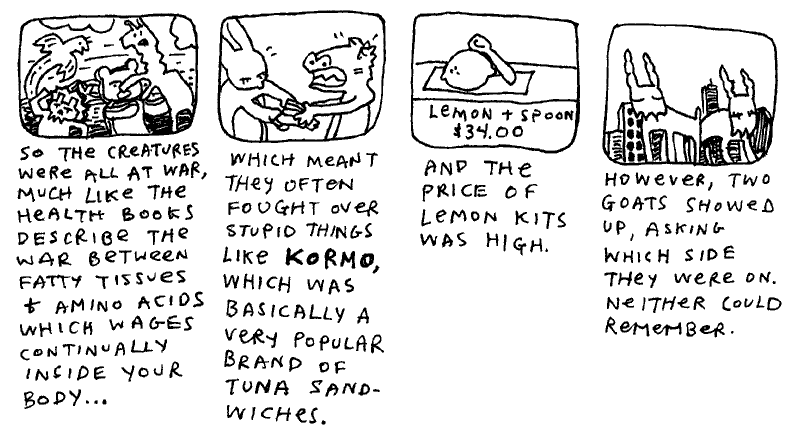 SO THE CREATURES
WERE ALL AT WAR,
MUCH LIKE THE
HEALTH BOOKS
DESCRIBE THE
WAR BETWEEN
FATTY TISSUES
& AMINO ACIDS
WHICH WAGES
CONTINUALLY
INSIDE YOUR
BODY...
WHICH MEANT
THEY OFTEN
FOUGHT OVER
STUPID THINGS
LIKE KORMO,
WHICH WAS
BASICALLY A
VERY POPULAR
BRAND OF
TUNA SAND-
WICHES.
LEMON + SPOON
$34.00
AND THE
PRICE OF
LEMON KITS
WAS HIGH.
HOWEVER, TWO
GOATS SHOWED
UP, ASKING
WHICH SIDE
THEY WERE ON.
NEITHER COULD
REMEMBER.